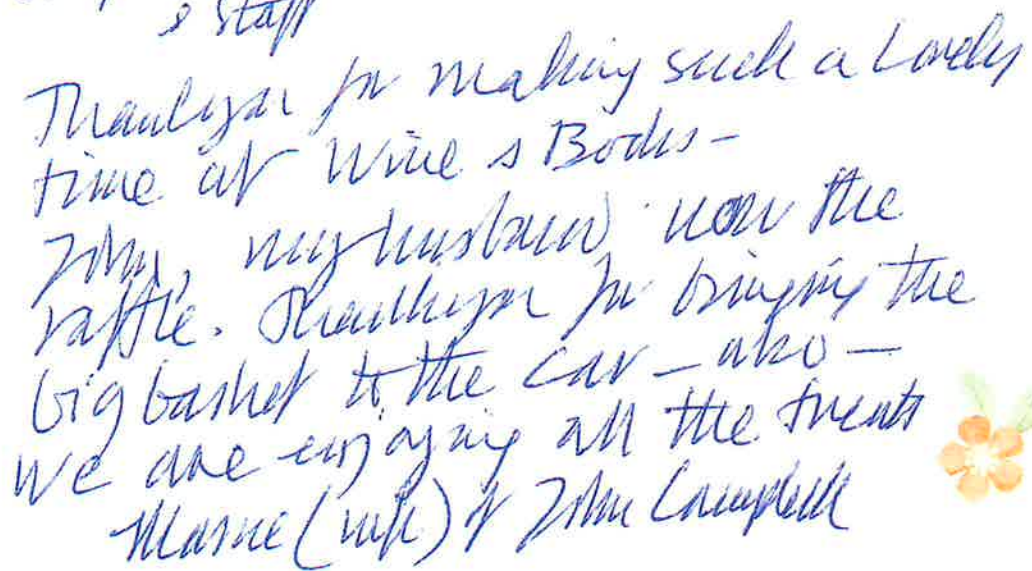 & staff
Thankyou for making such a Lovely
time at Wine & Books –
John, my husband won the
raffle. Thankyou for bringing the
big basket to the car – also –
we are enjoying all the treats
(wife) of John Campbell